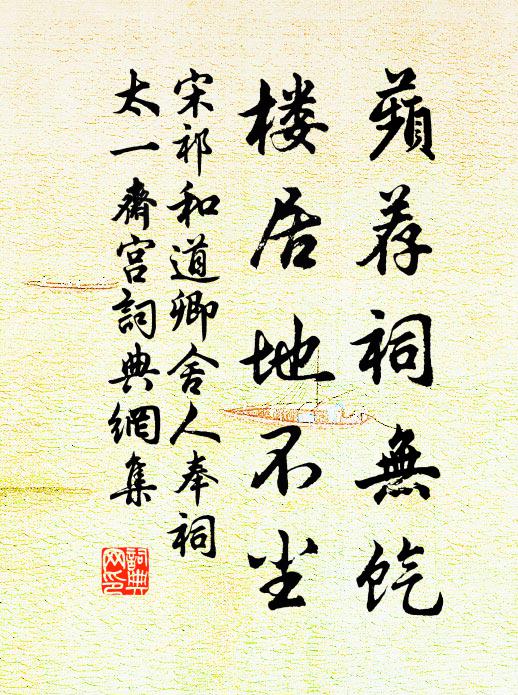 蘋荐祠無饩
楼居地不尘
宋祁和道卿舍人奉祠
太一齋宫詞典網集
詞典网印